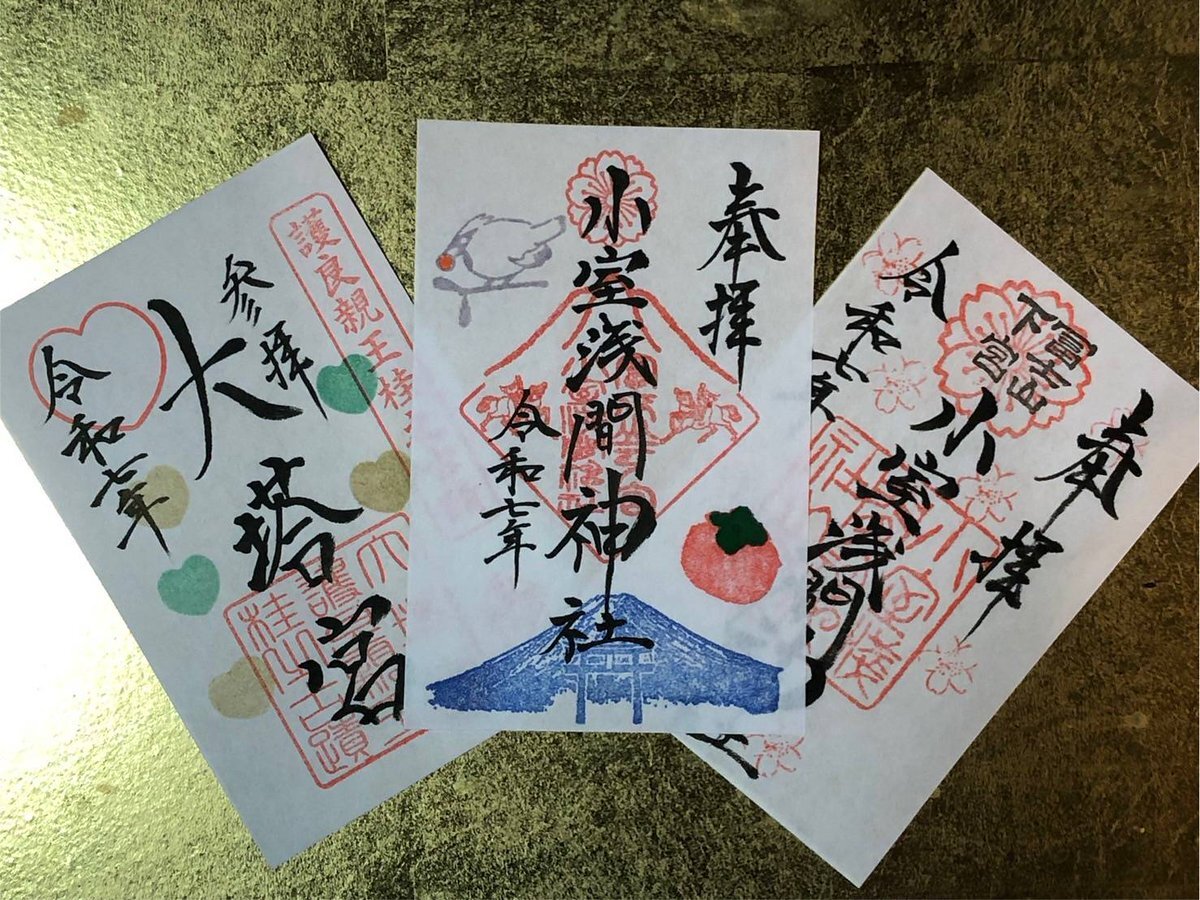 護良親王桂
参拝
大塔宮
令和七年
奉拝
小室浅間神社
令和七年
奉拝
富士山
下宮
小室浅間
令和七年